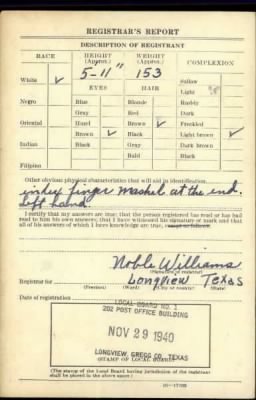 REGISTRAR'S REPORT
DESCRIPTION OF REGISTRANT
RACE HEIGHT (Approx.) WEIGHT (Approx.) COMPLEXION
5-11" 153
White ✓ Sallow
EYES HAIR Light
Negro Blue Blonde Ruddy
Gray Red Dark
Oriental Hazel Brown ✓ Freckled
Brown ✓ Black Light brown ✓
Indian Black Gray Dark brown
Bald Black
Filipino
Other obvious physical characteristics that will aid in identification
index finger mashed at the end.
left hand.
I certify that my answers are true; that the person registered has read or has had
read to him his own answers; that I have witnessed his signature or mark and that
all of his answers of which I have knowledge are true, except as follows:
Noble Williams
(Signature of registrar)
Registrar for Longview Texas
(Precinct) (Ward) (City or county) (State)
Date of registration
LOCAL BOARD NO. 1
202 POST OFFICE BUILDING
NOV 29 1940
LONGVIEW, GREGG CO., TEXAS
(STAMP OF LOCAL BOARD)
(The stamp of the Local Board having jurisdiction of the registrant
shall be placed in the above space.)